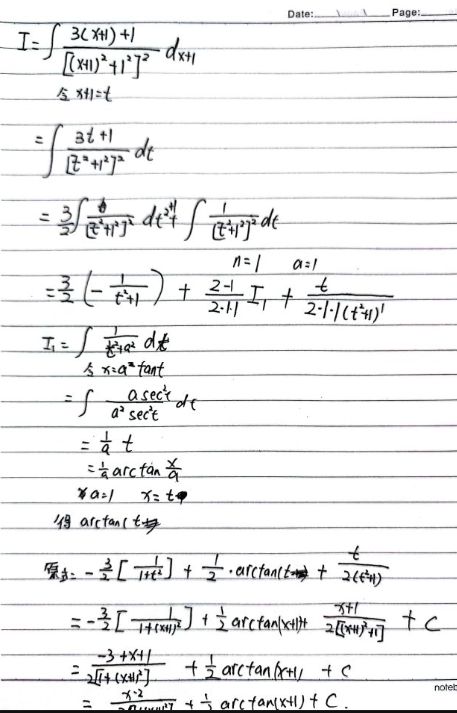 Date: Page:
I = ∫ 3(x+1)+1 / [(x+1)²+1²]² dx+1
令 x+1=t
= ∫ 3t+1 / [t²+1²]² dt
= 3/2 ∫ 1 / [t²+1²]² dt²+1 + ∫ 1 / [t²+1²]² dt
n=1 a=1
= 3/2 (- 1/(t²+1)) + (2-1)/(2·1·1) I₁ + t / 2·1·1(t²+1)¹
I₁ = ∫ 1/(t²+a²) dt
令 x=a tant
= ∫ a sec²t / a² sec²t dt
= 1/a t
= 1/a arctan x/a
a=1 x=t
得 arctan t
原式= - 3/2 [ 1/(1+t²) ] + 1/2 · arctan t + t / 2(t²+1)
= - 3/2 [ 1/(1+(x+1)²) ] + 1/2 arctan(x+1) + x+1 / 2[(x+1)²+1] + C
= -3+x+1 / 2[1+(x+1)²] + 1/2 arctan(x+1) + C
= x-2 / + 1/2 arctan(x+1) + C.
noteb